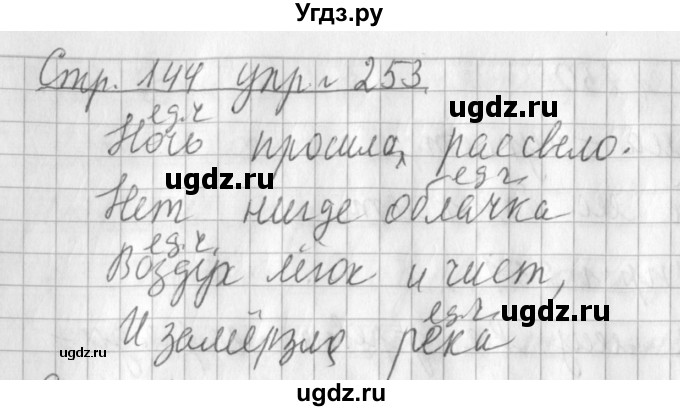 Угдз.ру
Стр. 144 упр. 253
ед.ч
Ночь прошла, рассвело.
ugdz.ru
ugdz.ru
ед.ч.
Нет нигде облачка
ед.ч.
Воздух лёгок и чист,
ugdz.ru
ед.ч.
И замёрзла река
ugdz.ru
ugdz.ru